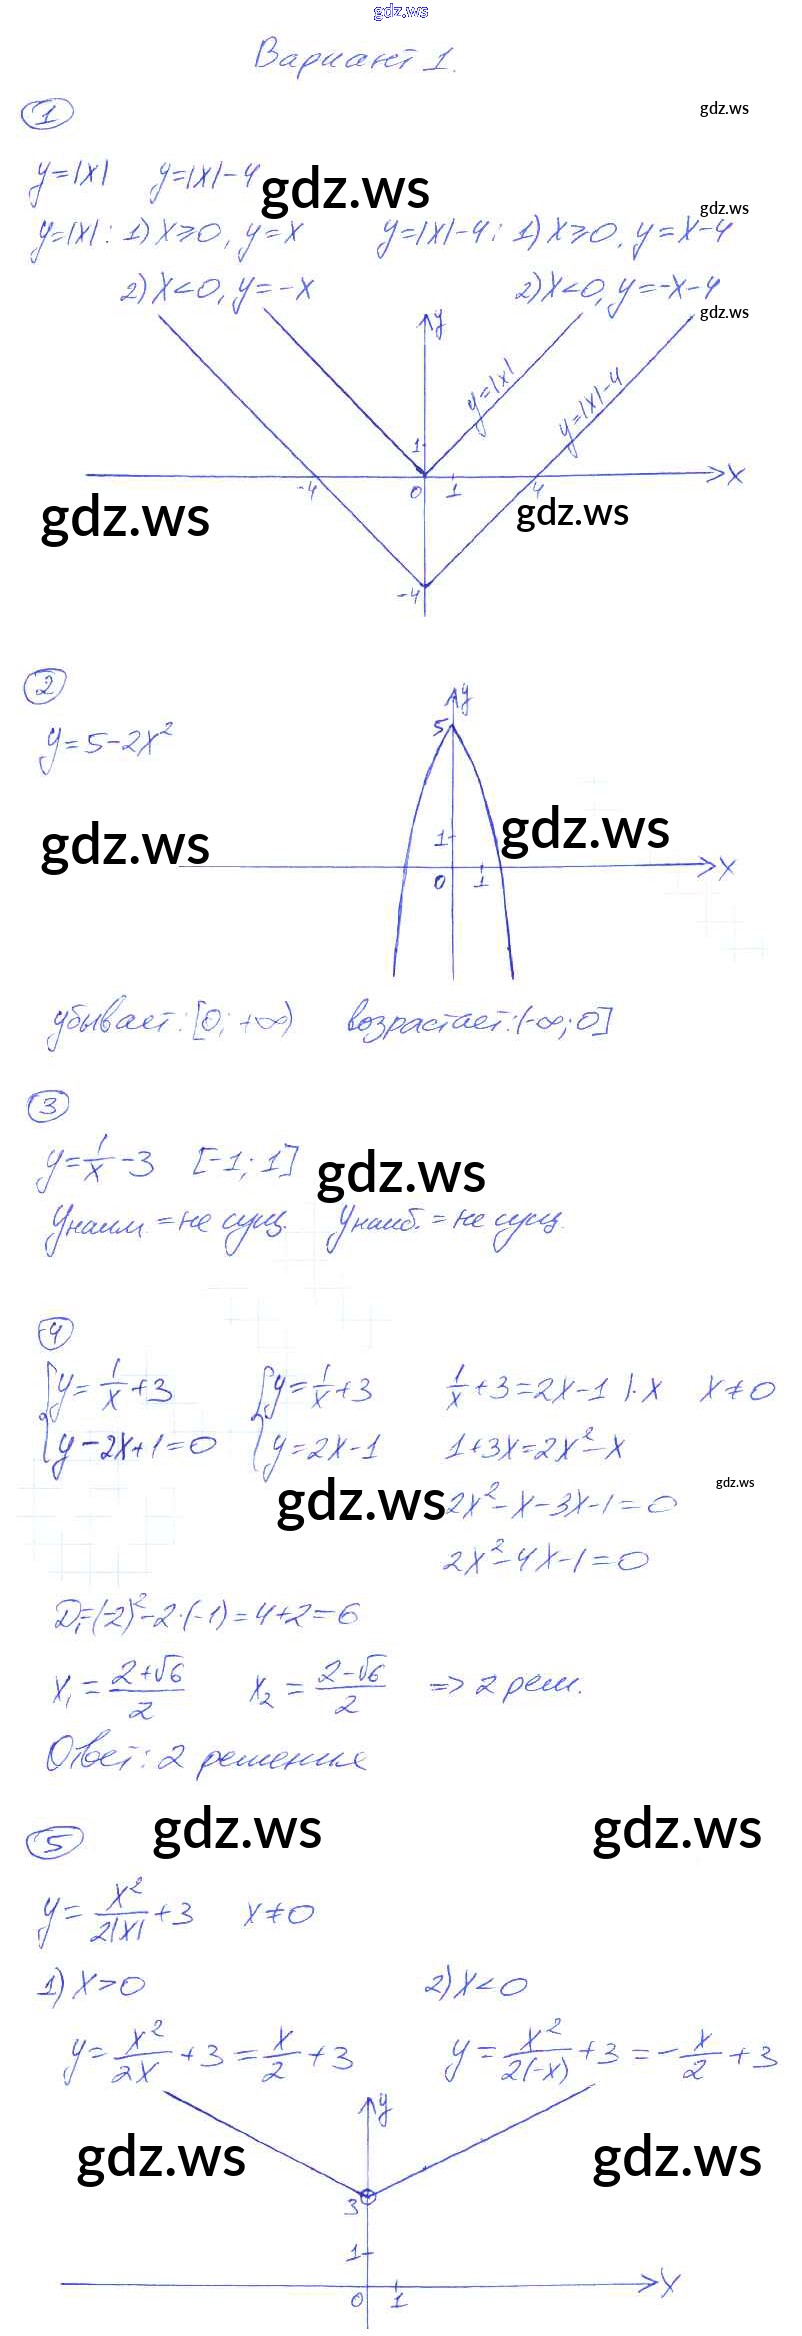 gdz.ws
Вариант 1.
1
gdz.ws
y=|x| y=|x|-4
gdz.ws
gdz.ws
y=|x|: 1) x≥0, y=x y=|x|-4: 1) x≥0, y=x-4
2) x<0, y=-x 2) x<0, y=-x-4
gdz.ws
y
y=|x|
y=|x|-4
1
-4 0 1 4 x
gdz.ws
gdz.ws
-4
2
y
5
y=5-2x²
gdz.ws
gdz.ws
1
0 1 x
убывает: [0; +∞) возрастает: (-∞; 0]
3
y=1/x-3 [-1; 1]
gdz.ws
yнаим. = не сущ. yнаиб. = не сущ.
4
{y=1/x+3 {y=1/x+3 1/x+3=2x-1 |·x x≠0
{y-2x+1=0 {y=2x-1 1+3x=2x²-x
gdz.ws
gdz.ws
2x²-x-3x-1=0
2x²-4x-1=0
D₁=(-2)²-2·(-1)=4+2=6
x₁=(2+√6)/2 x₂=(2-√6)/2 => 2 реш.
Ответ: 2 решения
gdz.ws
gdz.ws
5
y=x²/2|x|+3 x≠0
1) x>0 2) x<0
y=x²/2x+3=x/2+3 y=x²/2(-x)+3=-x/2+3
y
gdz.ws
gdz.ws
3
1
0 1 x